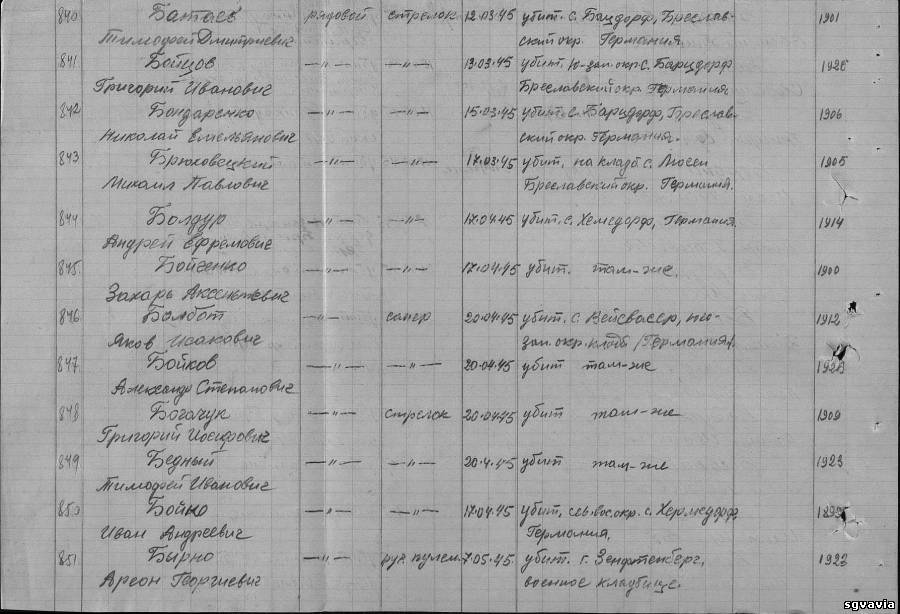 840 Батаев рядовой стрелок 12.03.45 убит. с. Бацдорф, Бреслав- 1901
Тимофей Дмитриевич ский окр. Германия
841 Бойцов —"— —"— 13.03.45 убит. ю-зап. окр. с. Барцдорф
Григорий Иванович Бреславский окр. Германия.
842 Бондаренко —"— —"— 15.03.45 убит. с. Барцдорф, Бреслав- 1906
Николай Емельянович ский окр. Германия.
843 Брюховецкий —"— —"— 17.03.45 убит, на кладб. с. Мосен 1905
Михаил Павлович Бреславский окр. Германия.
844 Болдур —"— —"— 17.04.45 убит. с. Хемедорф, Германия. 1914
Андрей Ефремович
845. Бойченко —"— —"— 17.04.45 убит. там-же. 1900
Захарь Аксентьевич
846 Болбот —"— сапер 20.04.45 убит. с. Вейсвасер, 1912
Яков Исакович зап. окр. кладб. Германия.
847 Бойков —"— —"— 20.04.45 убит там-же
Александр Степанович
848 Богачук —"— стрелок 20.04.45 убит там-же 1909
Григорий Иосифович
849 Бедный —"— —"— 20.4.45 убит там-же 1923
Тимофей Иванович
850 Бойно —"— —"— 17.04.45 убит, сев. вос. окр. с. Хермсдорф,
Иван Андреевич Германия.
851 Бырно —"— руч. пулем. 7.05.45. убит. г. Зенфтенберг, 1923
Арсон Георгиевич военное кладбище.
sgvavia